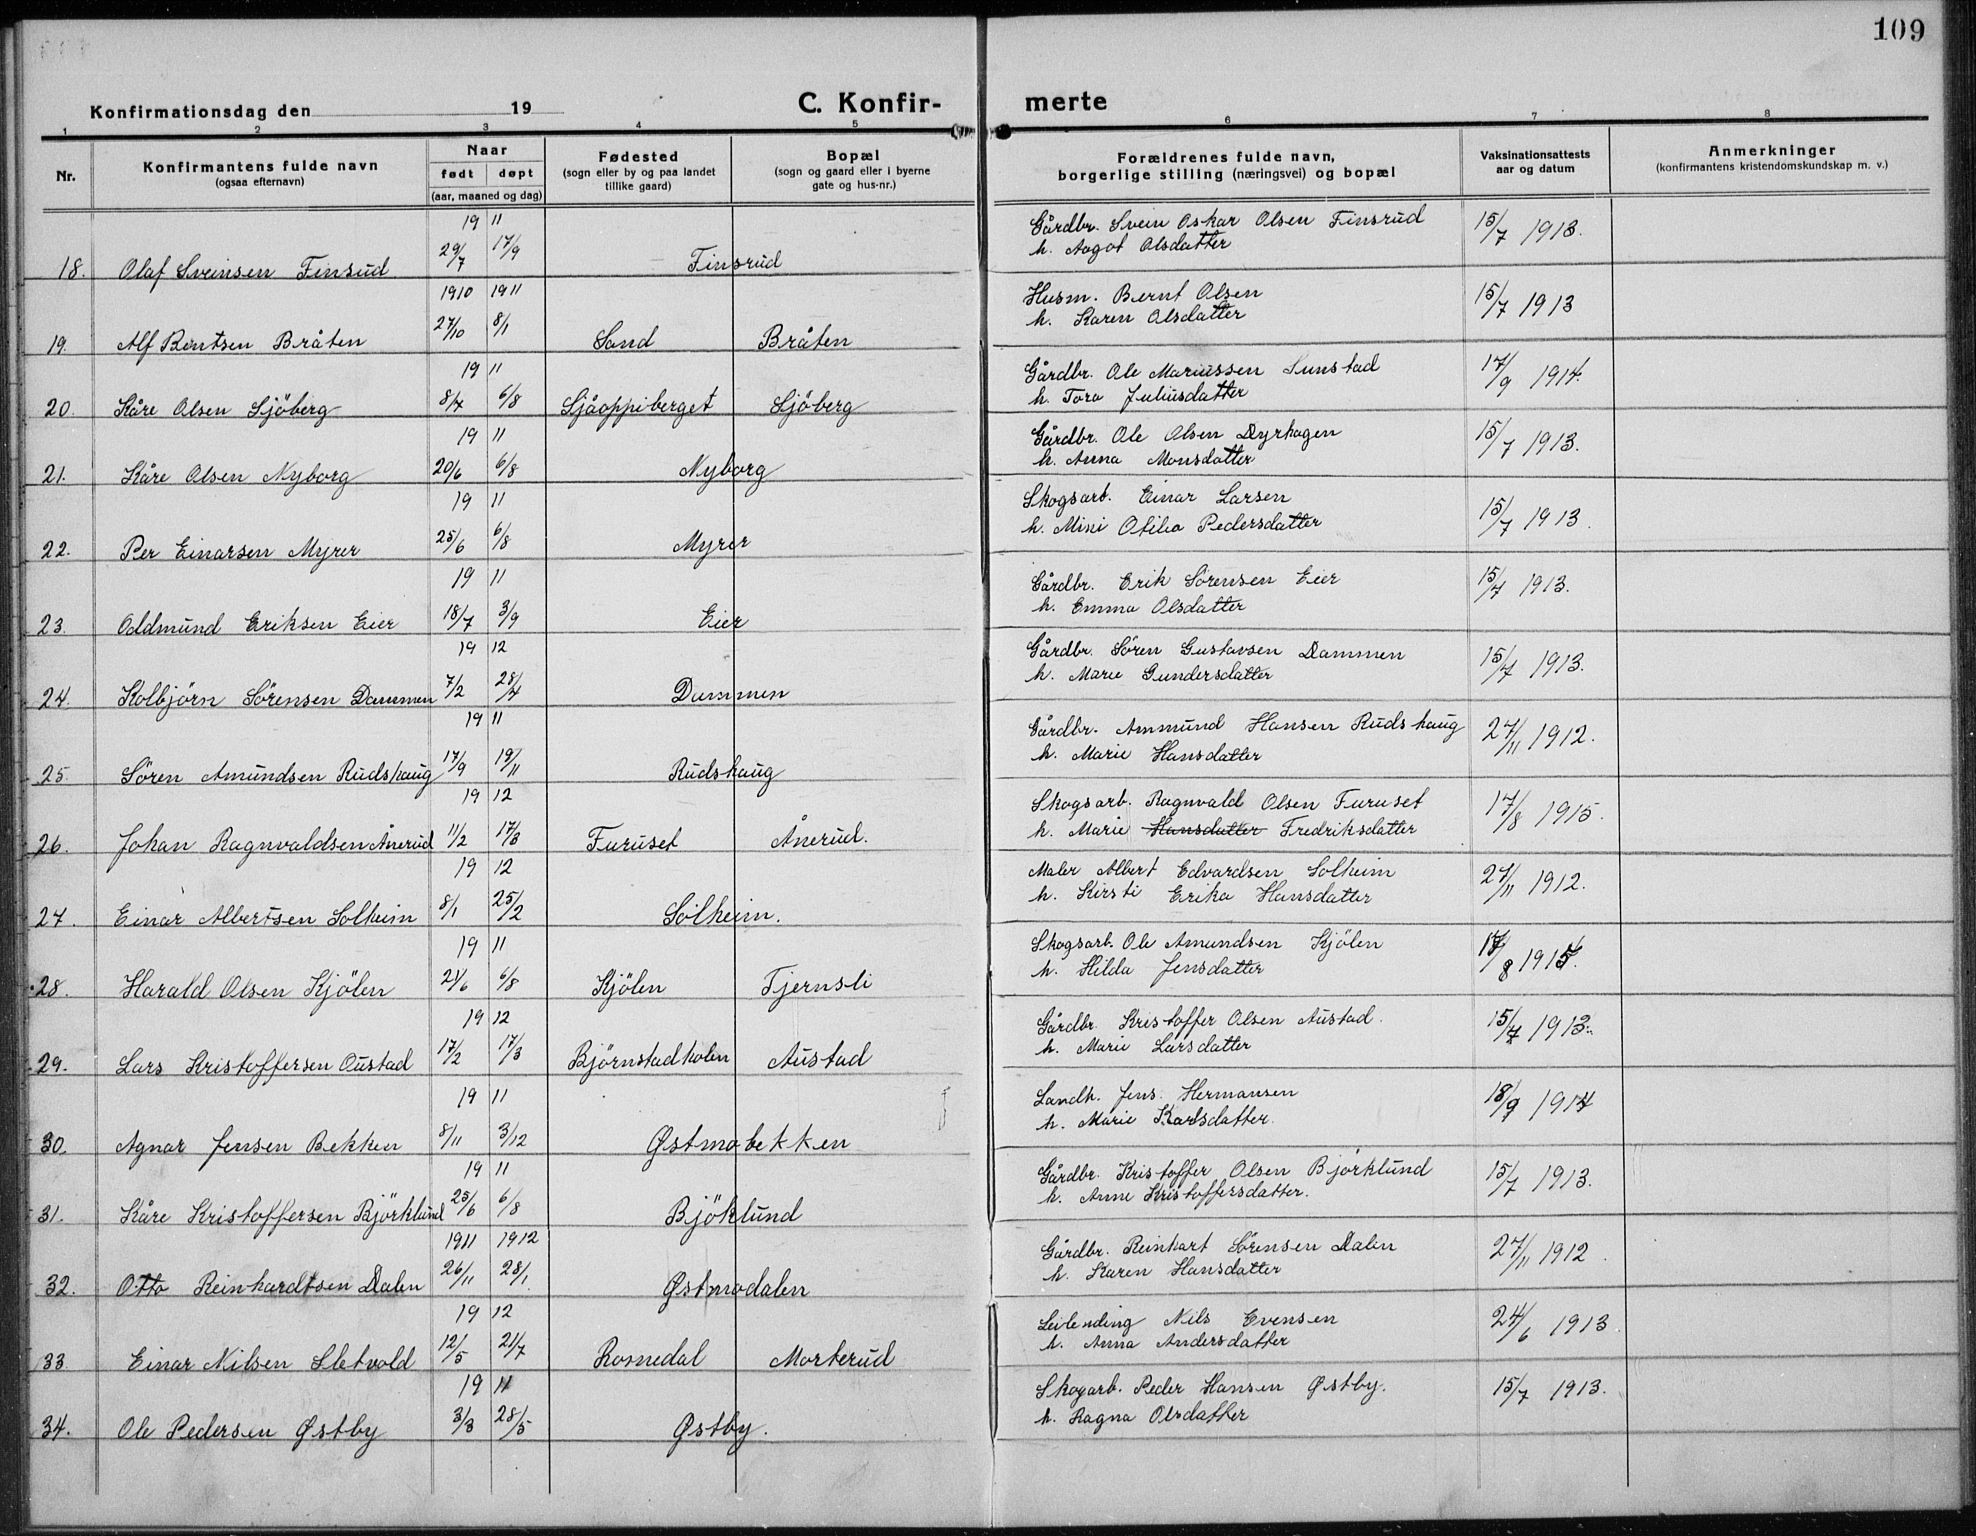 109
Konfirmationsdag den 19
C. Konfir-
merte
1 2 3 4 5 6 7 8
Nr.
Konfirmantens fulde navn
(ogsaa efternavn)
Naar
født døpt
(aar, maaned og dag)
Fødested
(sogn eller by og paa landet
tillike gaard)
Bopæl
(sogn og gaard eller i byerne
gate og hus-nr.)
Forældrenes fulde navn,
borgerlige stilling (næringsvei) og bopæl
Vaksinationsattests
aar og datum
Anmerkninger
(konfirmantens kristendomskundskap m. v.)
19 11
Gårdbr. Svein Oskar Olsen Finsrud
h. Aagot Olsdatter
18. Olaf Sveinsen Finsud 29/7 17/9 Finsrud 15/7 1913.
1910 1911
Husm. Bernt Olsen
h. Karen Olsdatter
19. Alf Bentsen Bråten 27/10 8/1 Sand Bråten 15/7 1913
19 11
Gårdbr. Ole Mariussen Sunstad
h. Tora Juliusdatter
20. Kåre Olsen Sjöberg 8/7 6/8 Sjåoppiberget Sjöberg 17/9 1914.
19 11
Gårdbr. Ole Olsen Dyrhagen
h. Anna Monsdatter
21. Kåre Olsen Nyborg 20/6 6/8 Nyborg 15/7 1913.
19 11
Skogsarb. Einar Larsen
h. Mini Otilia Pedersdatter
22. Per Einarsen Myrer 25/6 6/8 Myrer 15/7 1913.
19 11
Gårdbr. Erik Sörensen Eier
h. Emma Olsdatter
23. Oddmund Eriksen Eier 18/7 3/9 Eier 15/7 1913.
19 12
Gårdbr. Sören Gustavsen Dammen
h. Marie Gundersdatter
24. Kolbjörn Sörensen Dammen 7/2 28/4 Dammen 15/7 1913.
19 11
Gårdbr. Ammund Hansen Rudshaug
h. Marie Hansdatter
25. Sören Amundsen Rudshaug 17/9 19/11 Rudshaug 27/11 1912.
19 12
Skogsarb. Ragnvald Olsen Furuset
h. Marie Hansdatter Fredriksdatter
26. Johan Ragnvaldsen Ånerud 11/2 17/3 Furuset Ånerud. 17/8 1915.
19 12
Maler Albert Edvardsen Solheim
h. Kirsti Erika Hansdatter
27. Einar Albertsen Solheim 8/1 25/2 Solheim. 27/11 1912.
19 11
Skogsarb. Ole Amundsen Kjölen
h. Hilda Jensdatter
28. Harald Olsen Kjölen 21/6 6/8 Kjölen Tjernsli 17/8 1915.
19 12
Gårdbr. Kristoffer Olsen Austad.
h. Marie Larsdatter
29. Lars Kristoffersen Oustad 17/2 17/3 Björnstadkolen Austad 15/7 1913.
19 11
Landh. Jens Hermansen
h. Marie Karlsdatter.
30. Agnar Jensen Bekken 8/11 3/12 Østmobekken 18/9 1914
19 11
Gårdbr. Kristoffer Olsen Björklund
h. Anne Kristoffersdatter.
31. Kåre Kristoffersen Björklund 25/6 6/8 Bjöklund 15/7 1913.
1911 1912
Gårdbr. Reinhart Sörensen Dalen
h. Karen Hansdatter
32. Otto Reinhardtsen Dalen 26/11 28/1. Østmodalen 27/11 1912.
19 12
Leilending Nils Evensen
h. Anna Andersdatter
33. Einar Nilsen Sletvold 12/5 21/7 Romedal Morterud 24/6 1913
19 11
Skogarb. Peder Hansen Østby.
h. Ragna Olsdatter
34. Ole Pedersen Østby 3/3 28/5 Østby. 15/7 1913.